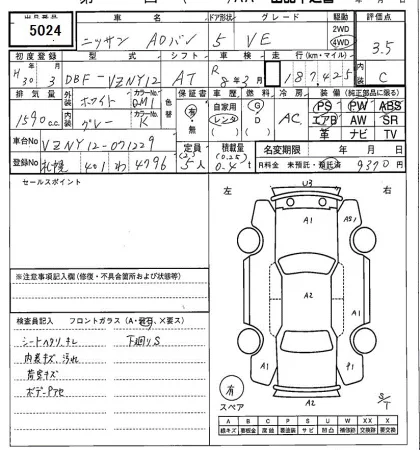 出品番号 車名 ドア形状 グレード 駆動 評価点
5024 ニッサン ADバン 5 VE 2WD 4WD 3.5
初度登録 型式 シフト 車検 走行(km・マイル) 内装
H30年3月 DBF-VZNY12 AT R8年3月 187,425 C
排気量 外装 カラーNo. 色替 保証書 車歴 燃料 冷房 装備(純正部品に限る)
1590cc ホワイト QM1 有・無 自家用 G AC PS PW ABS
内装 グレー カラーNo. K レンタ D エアB AW SR
革 ナビ TV
車台No VZNY12-071229 定員 積載量 名変期限 年 月 日
登録No 札幌 401 わ 4796 5人 0.4t R料金 未預託・預託済 9370円
セールスポイント
左 右
U3
A1
A2
A1
P1
A2
※注意事項記入欄(修復・不具合箇所および状態)
検査員記入 フロントガラス(A・飛石、×要ス)
シートヘタリ、キレ 下廻りS
内装キズ、汚れ
荷室キズ
有
スペア
S/T
A B C P S U W X XX
線キズ 鈑金 腐蝕 要塗装 サビ 凹凸 補修跡 交換跡 要交換